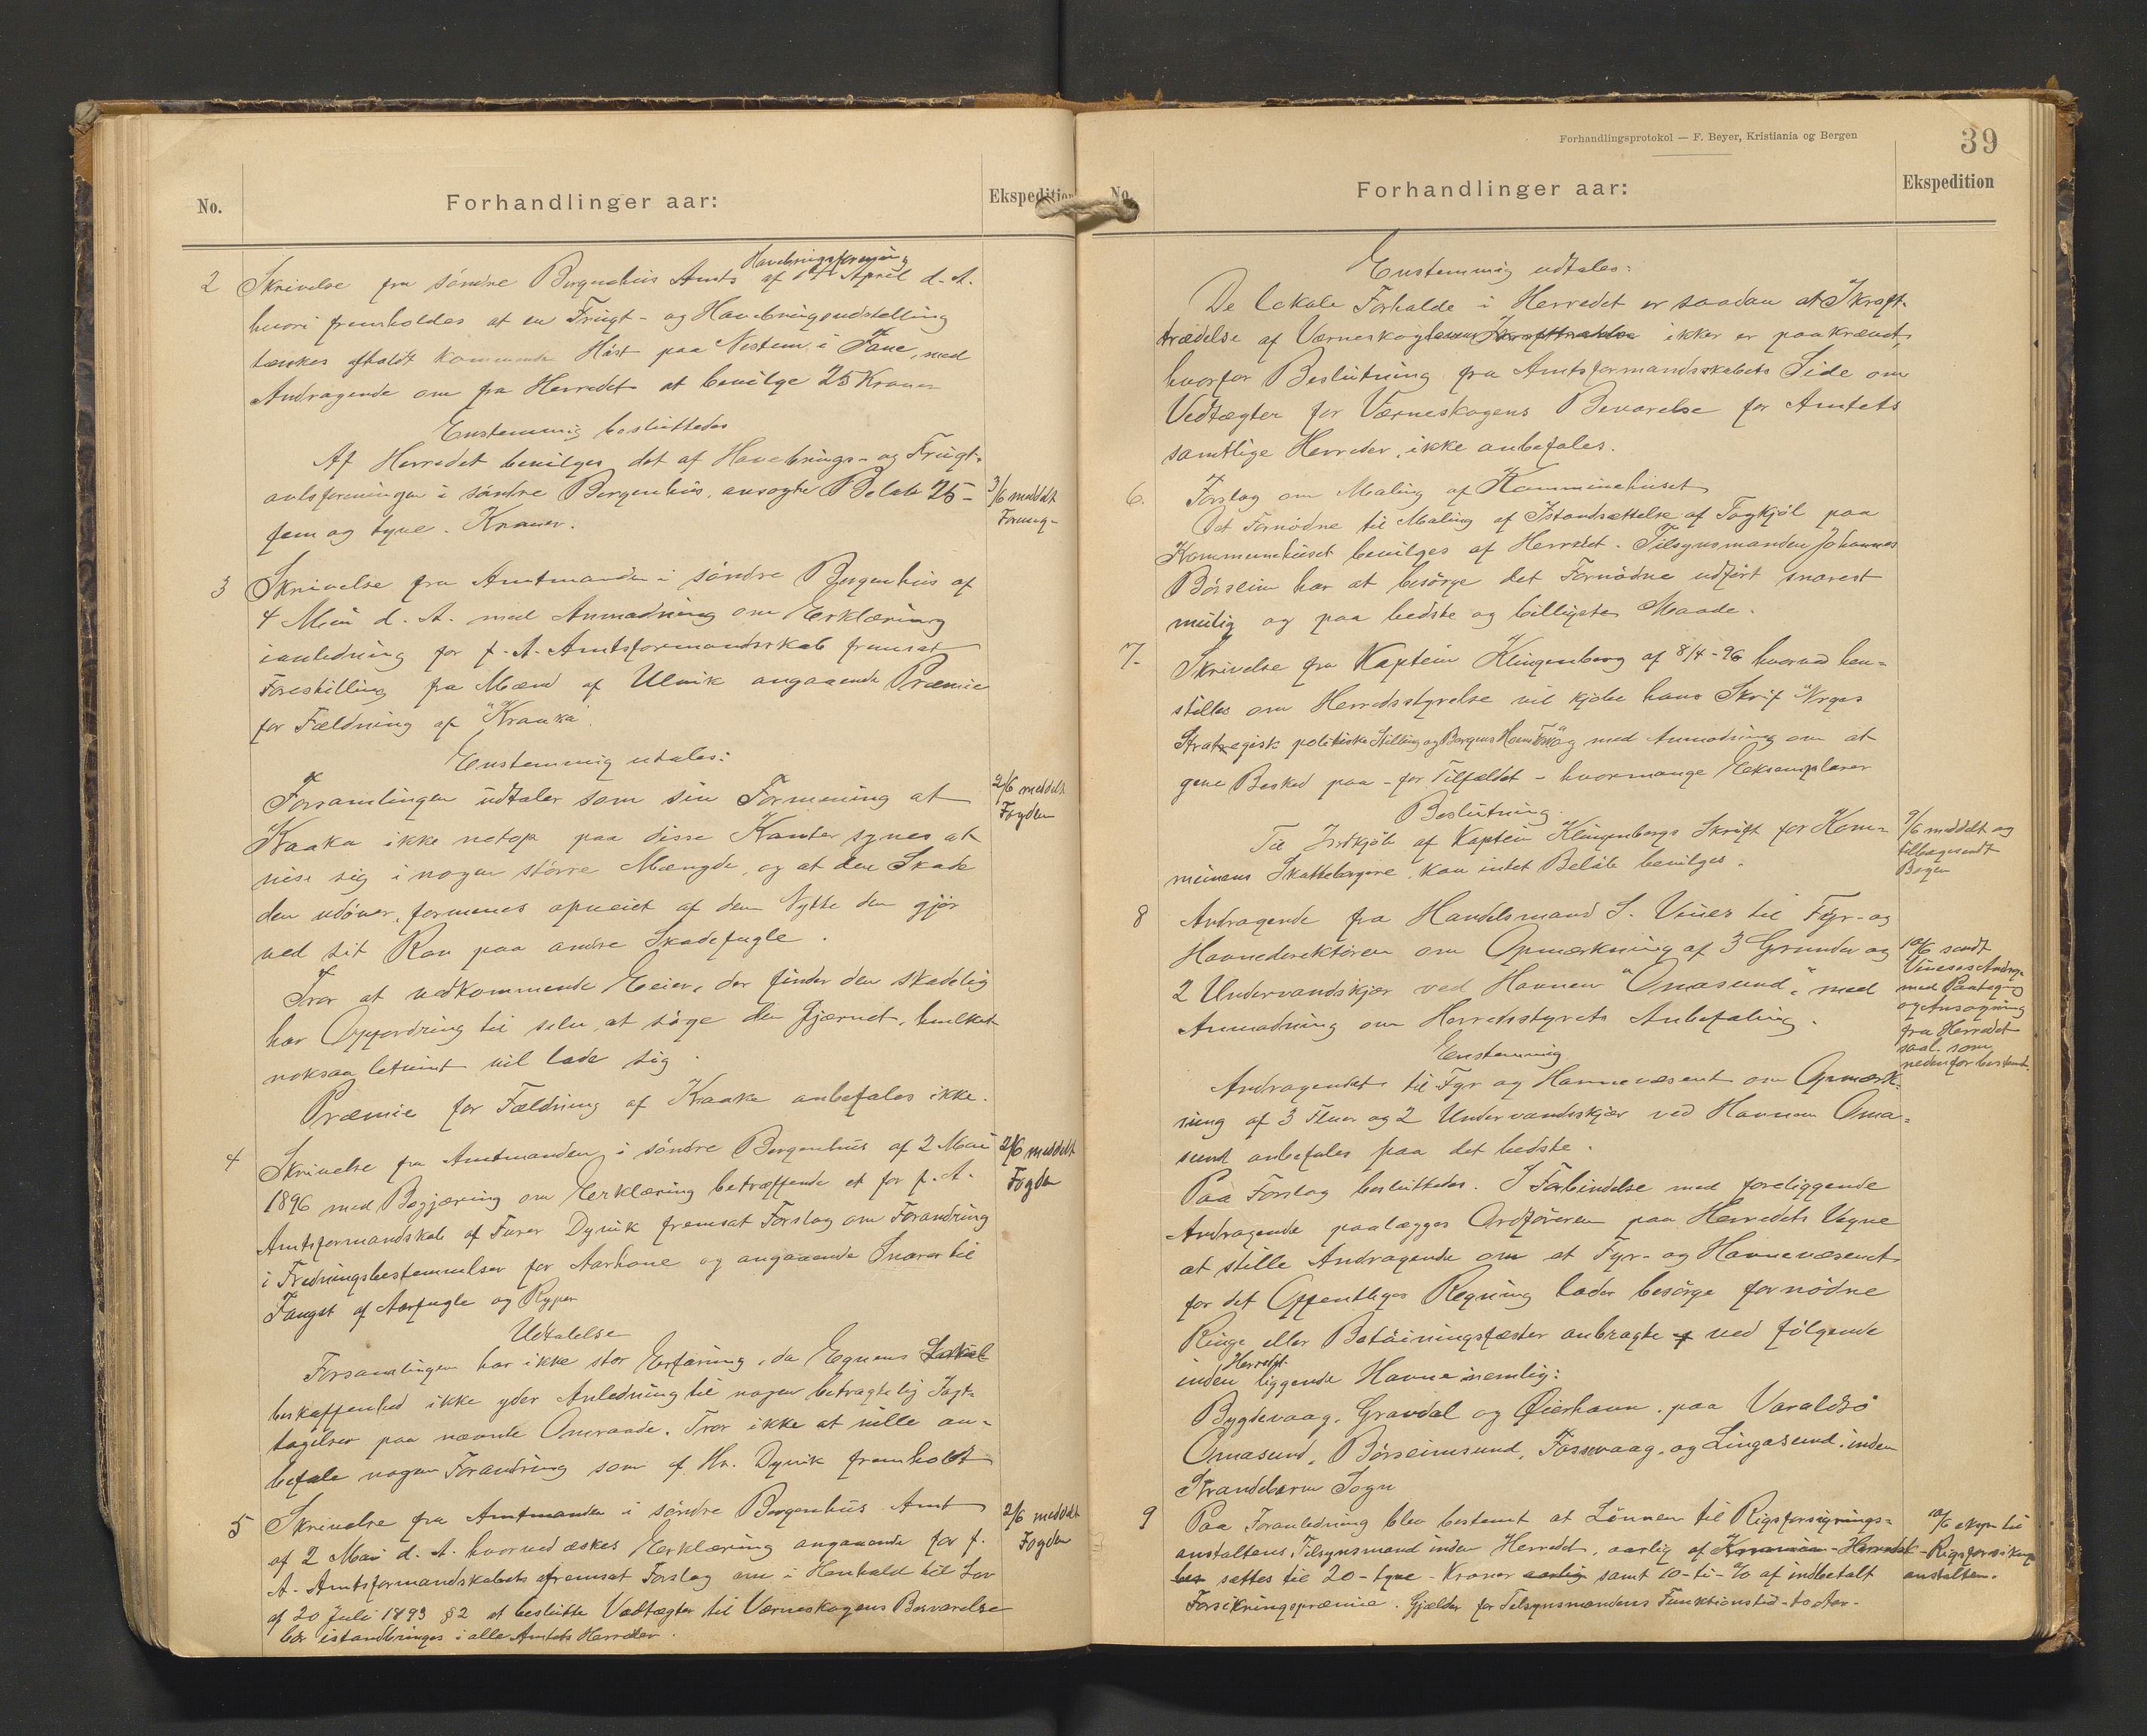 No.
Forhandlinger aar:
Ekspedition
2 Skrivelse fra söndre Bergenhus Amts Havebrugsforening af 14 April d. A.
hvori fremholdes at en Frugt- og Havebrugsudstilling
tænkes afholdt kommende Höst paa Nestun i Fane, med
Andragende om fra Herredet at bevilge 25 Kroner
Enstemmig besluttedes
Af Herredet bevilges det af Havebrugs- og Frugt-
avlsforeningen i söndre Bergenhus, ansøgte Beløb 25 -
fem og tyve - Kroner.
3/6 meddelt
Forening-
3 Skrivelse fra Amtmanden i söndre Bergenhus af
4 Mai d. A. med Anmodning om Erklæring
ianledning for f. A. Amtsformandsskab fremsat
Forestilling fra Mænd af Ulvik angaaende Præmie
for Fældning af "Kraaka".
Enstemmig utales:
Forsamlingen udtaler som sin Formening at
Kraaka ikke netop paa disse Kanter synes at
vise sig i nogen större Mængde, og at den Skade
den udöver, formenes opveiet af den Nytte den gjör
ved sit Rov paa andre Skadefugle.
Tror at vedkommende Eeier, der finder den skadelig
har Oppfordring til selv, at söge den fjærnet, hvilket
noksaa letvint vil lade sig.
Præmie for Fældning af Kraaka anbefales ikke.
2/6 meddelt
Fogden
4 Skrivelse fra Amtmanden i söndre Bergenhus af 2 Mai
1896 med Begjæring om Erklæring betræffende et for f. A.
Amtsformandskab af Furer Dyvik fremsat Forslag om Forandring
i Fredningsbestemmelser for Aarhane og angaaende Snarer til
Fangst af Aarfugle og Ryper
2/6 meddelt
Fogden
Udtalelse
Forsamlingen har ikke stor Erfaring, da Egnens Lokal-
beskaffenhed ikke yder Anledning til nogen betragtelig Jagt-
tagelser paa nævnte Omraade. Tror ikke at ville an-
befale nogen Forandring som af Hr. Dyvik fremholdt
5 Skrivelse fra Amtmanden i söndre Bergenhus Amt
af 2 Mai d. A. hvorved æskes Erklæring angaaende for f.
A. Amtsformandskabets fremsat Forslag om i Henhold til Lov
af 20 Juli 1893 § 2 at beslutte Vedtægter til Værneskogens Bevarelse
bør istandbringes i alle Amtets Herreder.
2/6 meddelt
Fogden
Forhandlingsprotokol — F. Beyer, Kristiania og Bergen
39
No.
Forhandlinger aar:
Ekspedition
Enstemmig udtales:
De lokale Forholde i Herredet er saadan at Ikraft-
trædelse af Værneskoglovens Ikrafttrædelse ikker er paakrævet,
hvorfor Beslutning fra Amtsformandsskabets Side om
Vedtægter for Værneskogens Bevarelse for Amtets
samtlige Herreder, ikke anbefales.
6. Forslag om Maling af Kommunehuset
Det Fornödne til Maling af Istandsættelse af Tagkjöl paa
Kommunehuset bevilges af Herredet. Tilsynsmanden Johannes
Börseim har at besörge det Fornödne udfört snarest
mulig og paa bedste og billigste Maade.
7. Skrivelse fra Kaptein Klingenberg af 8/4-96 hvorved hen-
stilles om Herredsstyrelse vil kjöbe hans Skrift "Norges
Strategisk politiske Stilling og Bergens Havns Forsvar" og med Anmodning om at
give Besked paa - for Tilfældet - hvormange Eeksemplarer
Beslutning
Til Indkjöb af Kaptein Klingenbergs Skrift for Kom-
munens Skattebærgere, kan intet Belöb bevilges.
9/6 meddelt og
tilbagesendt
Bogen
8 Andragende fra Handelsmand S. Vines til Fyr- og
Havnedirektören om Opmærkning af 3 Grunder og
2 Undervandskjær ved Havnen "Omasund", med
Anmodning om Herredsstyrets Anbefaling.
10/6 sendt
Vineses Andrag.
med Paategning
og Ansøgning
fra Herredet
saal. som
nedenfor bestemt.
Enstemmig
Andragendet til Fyr og Havnevæsent om Opmærk-
ning af 3 Fluer og 2 Undervandsskjær ved Havnen Oma-
sund anbefales paa det bedste.
Paa Forslag besluttedes. I Forbindelse med foreliggende
Andragende paalægges Ordföreren paa Herredets Vegne
at stille Andragende om at Fyr- og Havnevæsenet
for det Offentliges Regning lader besörge fornödne
Ringe eller Betöiningsfæster anbragte ved fölgende
inden Herredet liggende Havne nemlig:
Bygdevaag, Gravdal og Øierhavn, paa Varaldsö
Omasund, Börseimsund, Fossvaag, og Lingasund, inden
Strandebarm Sogn
9 Paa Foranledning blev bestemt at Lönnen til Rigsforsigrings-
anstaltens Tilsynsmand inden Herredet, aarlig af Kommunen Herredet
bes sættes til 20 - tyve - Kroner aarlig samt 10 - ti - % af indbetalt
Forsikringspræmie. Gjælder for Tilsynsmandens Funktionstid - to Aar.
10/6 ekspr. til
Rigsforsikrings
anstalten.